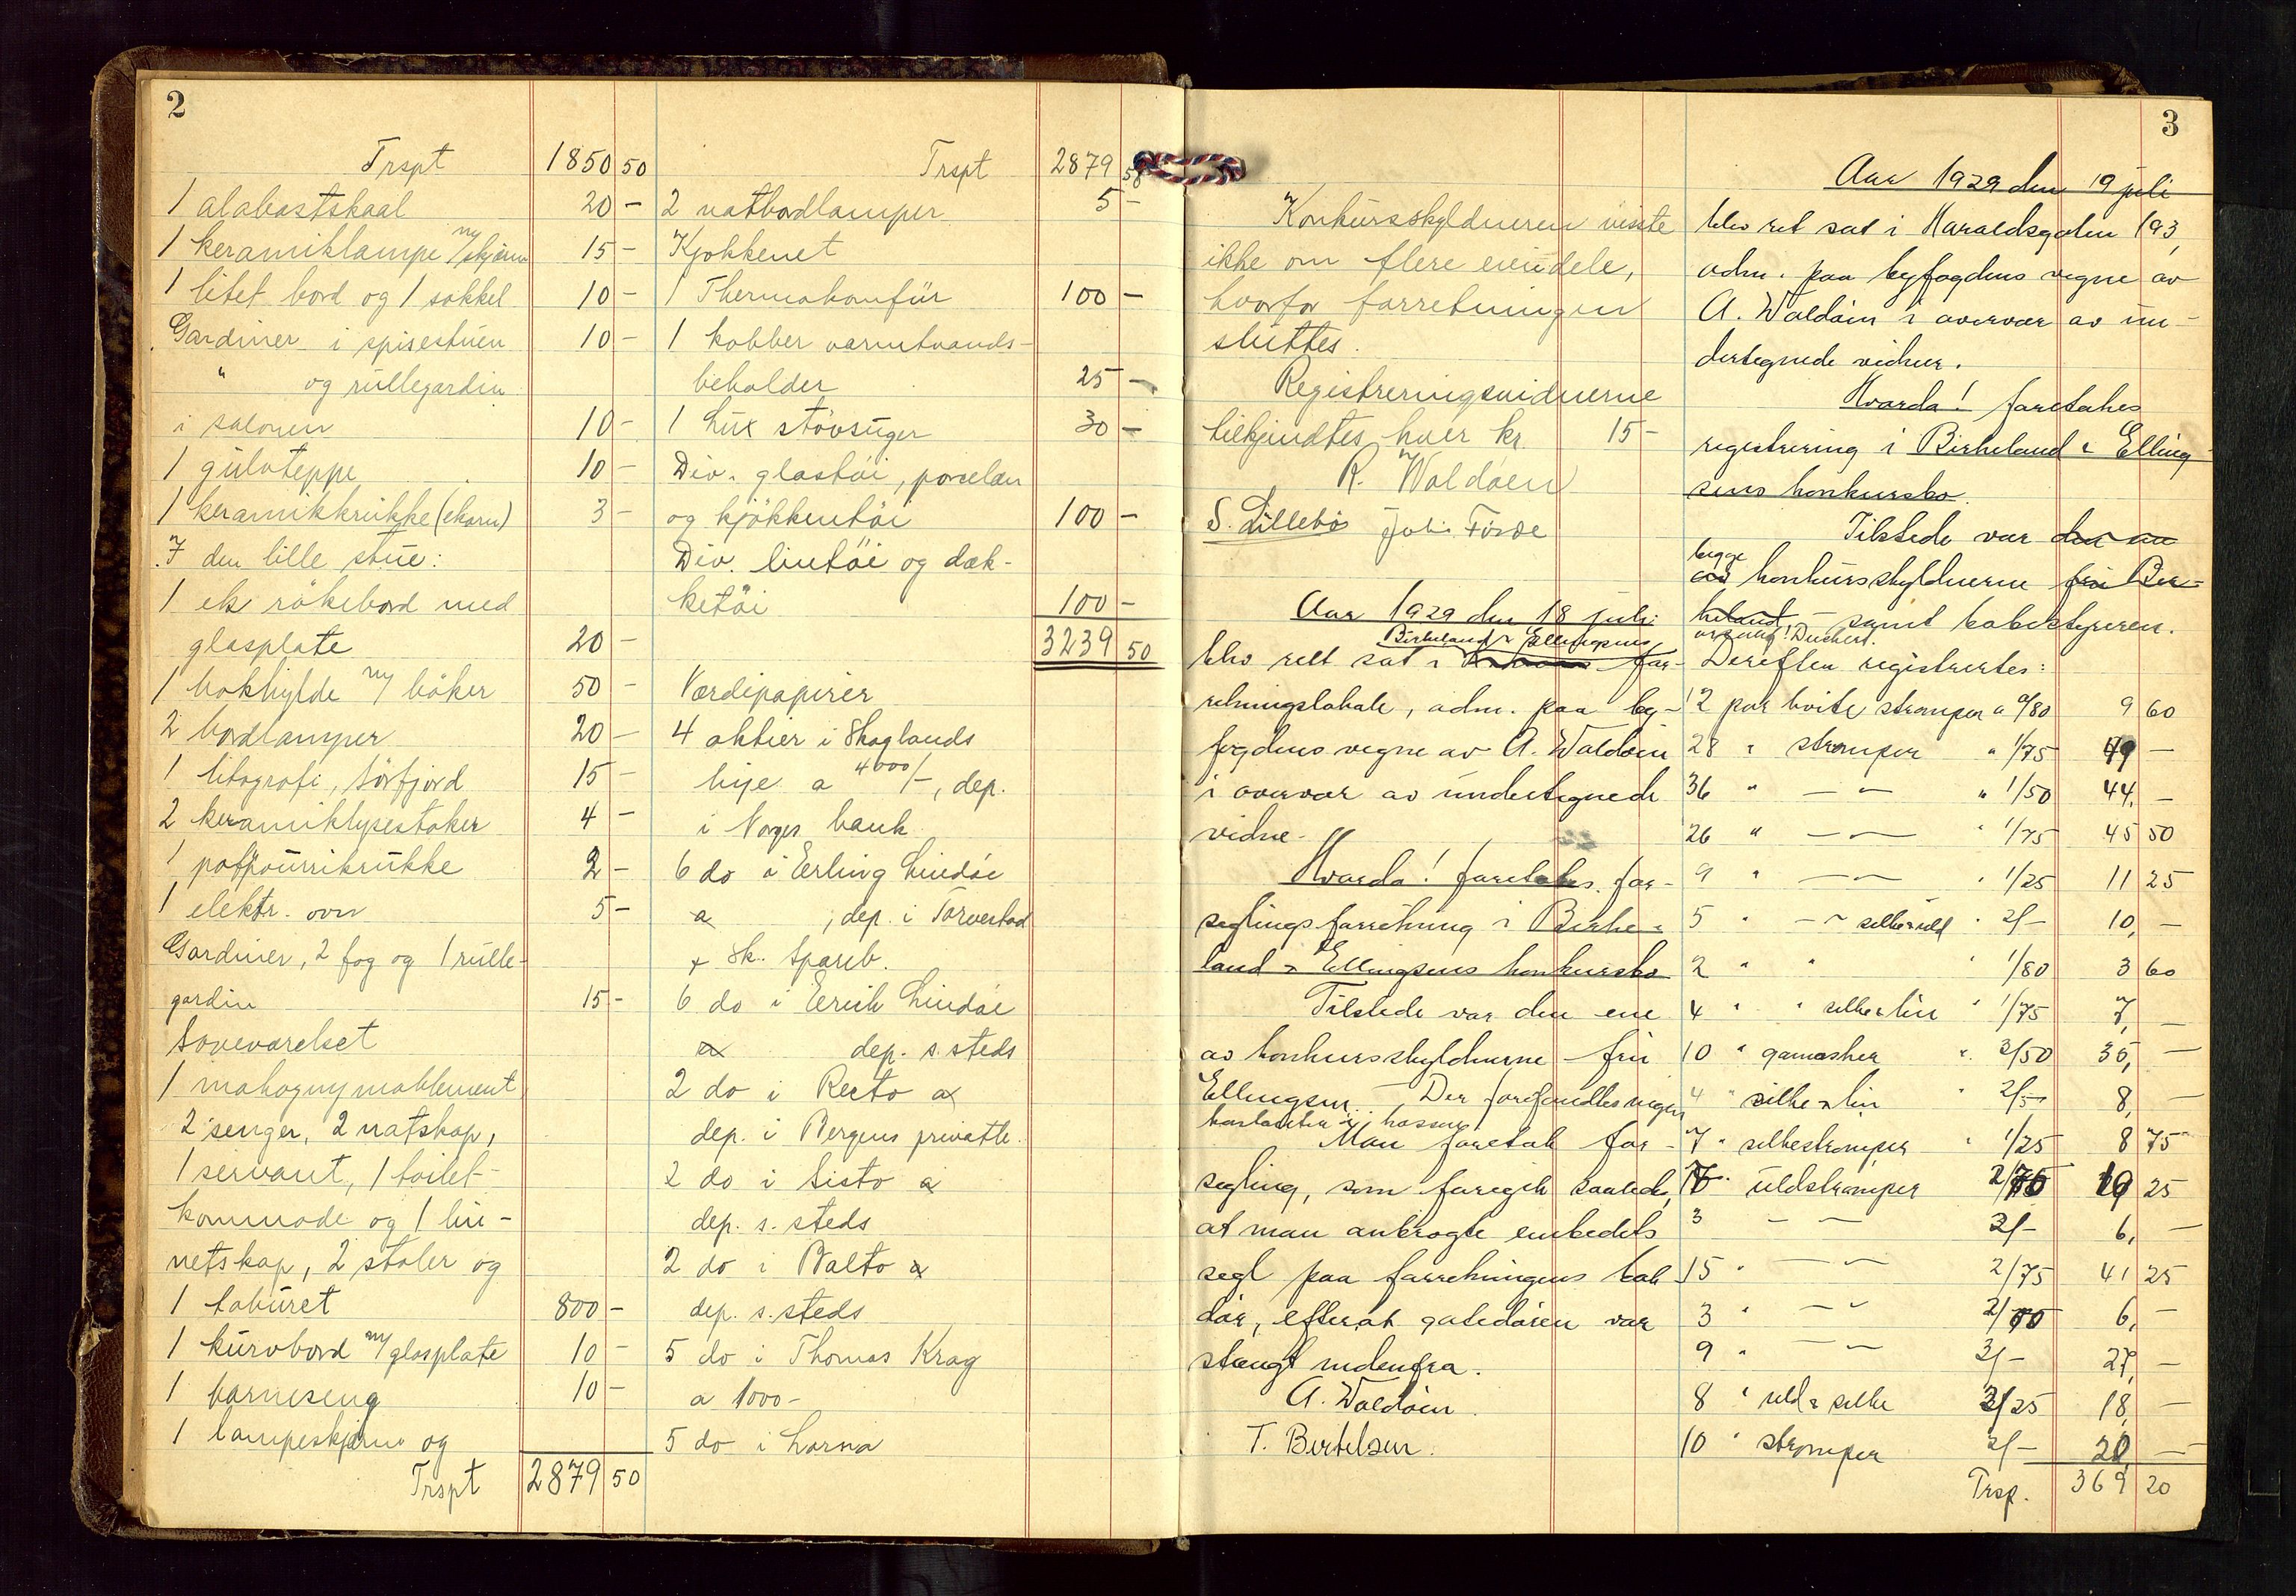 2
Trspt 1850 50
1 alabastskaal 20 -
1 keramiklampe m/skjærm 15 -
1 litet bord og 1 sokkel 10 -
Gardiner i spisestuen 10 -
" og rullegardin
i salonen 10 -
1 gulvteppe 10 -
1 keramikkrukke (ekorn) 3 -
I den lille stue:
1 ek røkebord med
glasplate 20 -
1 bokhylde m/ bøker 50 -
2 bordlamper 20 -
1 litografi, Sørfjord 15 -
2 keramiklysestaker 4 -
1 potpourrikrukke 2 -
1 elektr. ovn 5 -
Gardiner, 2 fag og 1 rulle-
gardin 15 -
Soveværelset
1 mahognymøblement
2 senger, 2 natskap,
1 servant, 1 toilet-
kommode og 1 lin-
netskap, 2 stoler og
1 taburet 800 -
1 kurvbord m/glasplate 10 -
1 barneseng 10 -
1 lampeskjærm og
Trspt 2879 50
Trspt 2879 50
2 natbordlamper 5 -
Kjøkkenet
1 Thermakomfür 100 -
1 kobber varmtvands-
beholder 25 -
1 Lux støvsuger 30 -
Div. glastøi, porcelæn
og kjøkkentøi 100 -
Div. lintøi og dæk-
ketøi 100 -
3239 50
Værdipapirer
4 aktier i Skoglands
linje a 4000/-, dep.
i Norges bank
6 do i Erling Lindøe
a , dep. i Torvestad
+ Sk. Spareb.
6 do i Erich Lindøe
a dep. s. steds
2 do i Recto a
dep. i Bergens privatb.
2 do i Sisto a
dep. s. steds
2 do i Balto a
dep. s. steds
5 do i Thomas Krag
a 1000-
5 do i Lorna
Konkursskyldneren visste
ikke om flere eiendele,
hvorfor forretningen
sluttes.
Registreringsvidnerne
tilkjendtes hver kr 15 -
R. Waldøen
S. Lillebø Joh. Førde
Aar 1929 den 18 juli
Birkeland & Ellingsens
blev rett sat i for-
retningslokale, adm. paa by-
fogdens vegne av A. Waldøen
i overvær av undertegnede
vidne.
Hvorda! foretokes for-
seglingsforretning i Birke-
land & Ellingsens konkursbo
Tilstede var den ene
av konkursskyldnerne - frü
Ellingsen. Der forefandtes ingen
kontanter i kassen.
Man foretok for-
segling, som foregik saaledes,
at man anbragte embedets
segl paa forretningens bak
dør, efterat gatedøren var
stængt indenfra.
A. Waldøen
T. Bertelsen.
3
Aar 1929 den 19 juli
blev ret sat i Haraldsgaten 193,
adm. paa byfogdens vegne av
A. Waldøen i overvær av un-
dertegnede vidner.
Hvorda! foretokes
registrering i Birkeland & Elling-
sens konkursbo.
Tilstede var den ene
begge
av konkursskyldnerne frü Bir-
keland - samt bobestyreren.
Duckert.
Derefter registrertes:
12 par hvite strømper a 0/80 9 60
28 " strømper " 1/75 49 -
36 " - " - " 1/50 44, -
26 " - " - " 1/75 45 50
9 " - " - " 1/25 11 25
5 " - " silke & uld " 2/- 10, -
2 " " " 1/80 3 60
4 " " silke & lin " 1/75 7, -
10 " gamasher " 3/50 35, -
4 " silke & lin " 2/- 8, -
7 " silkestrømper " 1/25 8 75
7 " uldstrømper 2/75 19 25
3 - " - 2/- 6, -
15 " - " - 2/75 41 25
3 " - " - 2/00 6, -
9 " - 3/- 27, -
8 " uld & silke 2/25 18, -
10 " strømper 2/- 20, -
Trsp. 369 20